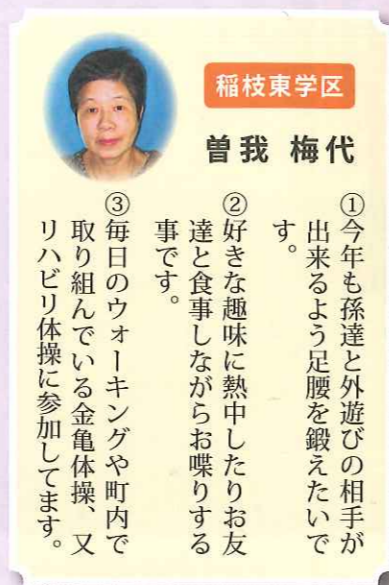 稲枝東学区
曽我 梅代
①今年も孫達と外遊びの相手が
出来るよう足腰を鍛えたいで
す。
②好きな趣味に熱中したりお友
達と食事しながらお喋りする
事です。
③毎日のウォーキングや町内で
取り組んでいる金亀体操、又
リハビリ体操に参加してます。